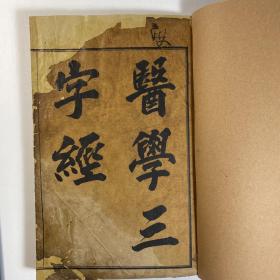 醫學三
字經